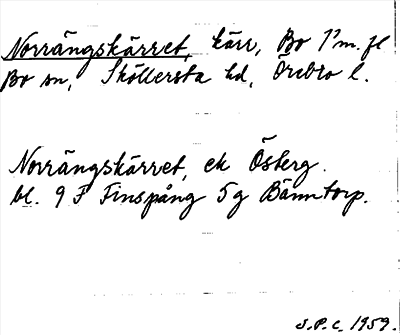 Norrängskärret, kärr, Bo 1⁹ m. fl
Bo sn, Sköllersta hd, Örebro l.
Norrängskärret, ek Österg.
bl. 9 F Finspång 5g Bänntorp.
S.P.C. 1959.